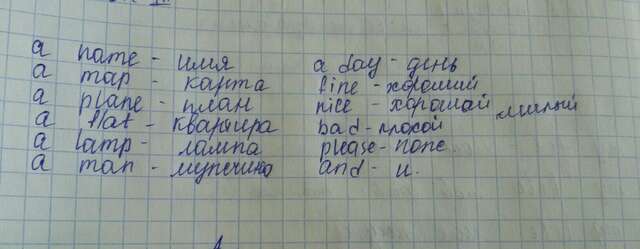 a name - имя
a map - карта
a plane - план
a flat - квартира
a lamp - лампа
a man - мужчина
a day - день
fine - хороший
nice - хороший милый
bad - плохой
please - поле
and - и.